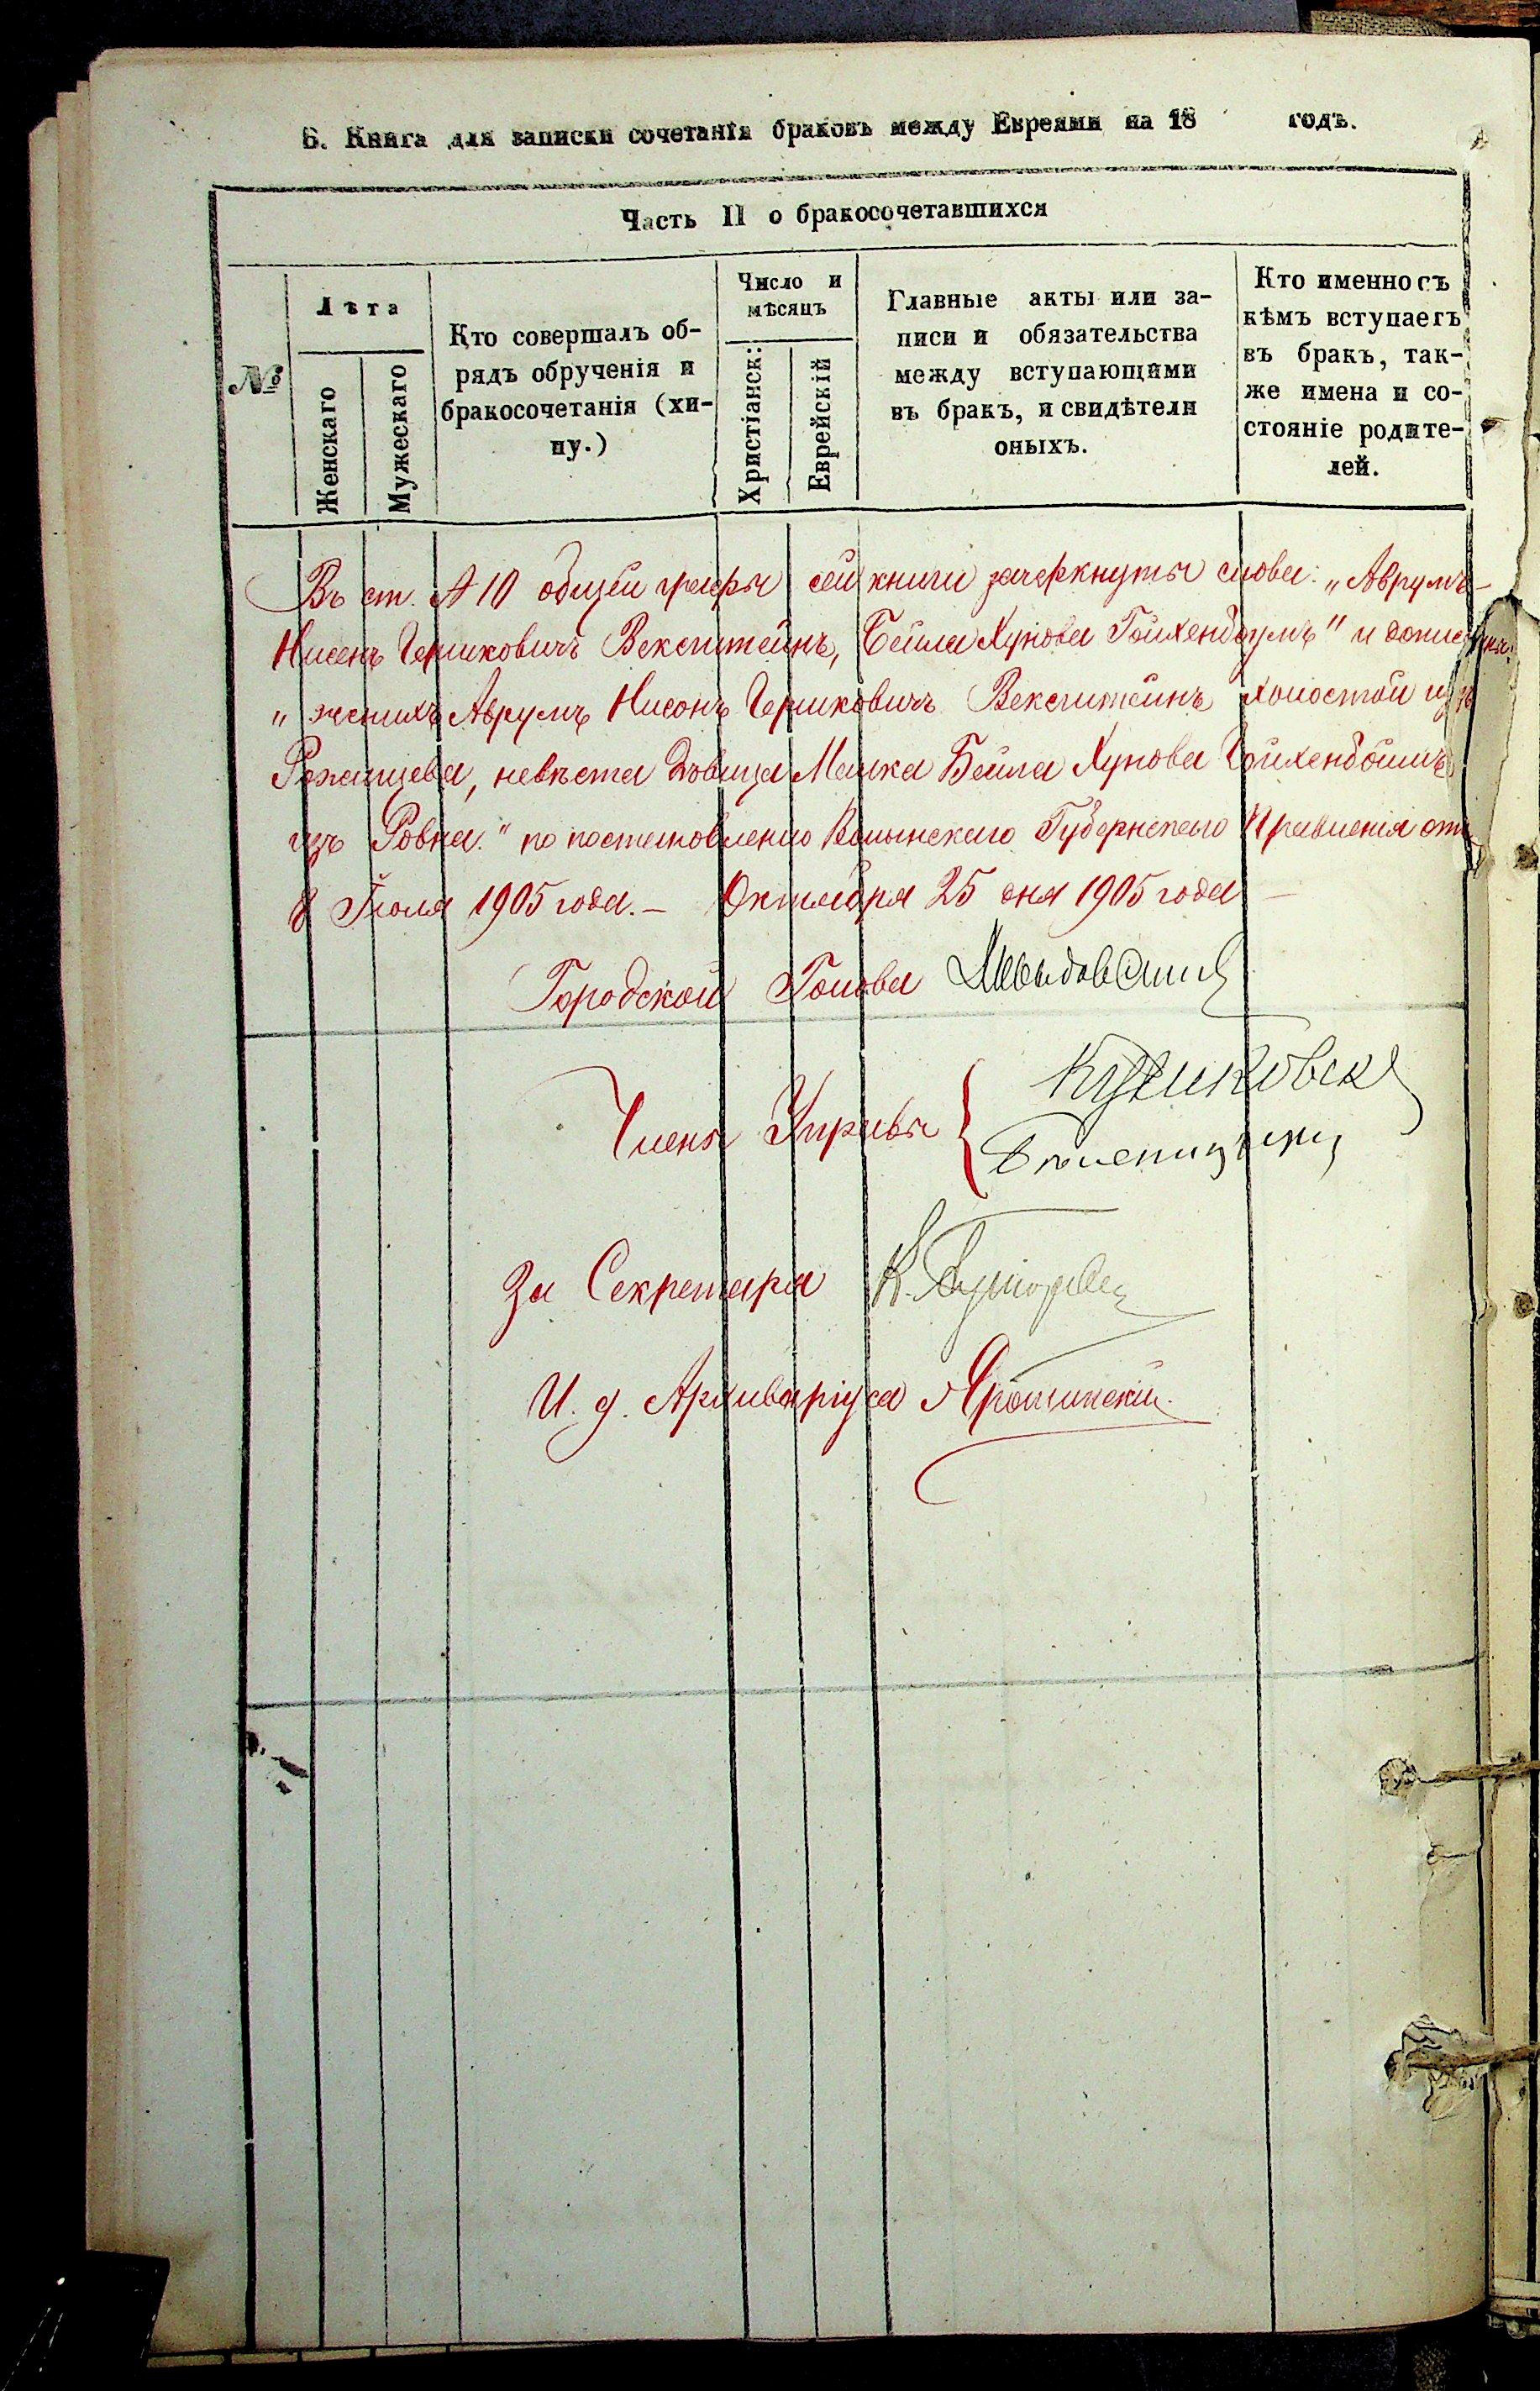 Б. Книга для записки сочетанія браковъ между Евреями на 18 годъ.
Часть II о бракосочетавшихся
№
Лѣта
Женскаго
Мужескаго
Кто совершалъ об-
рядъ обрученія и
бракосочетанія (хи-
пу.)
Число и
мѣсяцъ
Христіанск:
Еврейскій
Главные акты или за-
писи и обязательства
между вступающими
въ бракъ, и свидѣтели
оныхъ.
Кто именно съ
кѣмъ вступаетъ
въ бракъ, так-
же имена и со-
стояніе родите-
лей.
Въ ст. № 10 общей графы сей книги зачеркнуты слова: „Аврумъ-
Нисенъ Гершковичъ Векштейнъ, Бейла Хунова Гойхенбаумъ" и дописаны:
„женихъ Аврумъ Нисонъ Гершковичъ Векштейнъ холостой изъ
Рожищева, невѣста дѣвица Малка Бейла Хунова Гойхенбоимъ
изъ Ровна." по постановленію Волынскаго Губернскаго Правленія отъ
8 Іюля 1905 года. — Октября 25 дня 1905 года —
Городской Голова
Члены Управы
За Секретаря К.
И. д. Архиваріуса Ярошинскій.